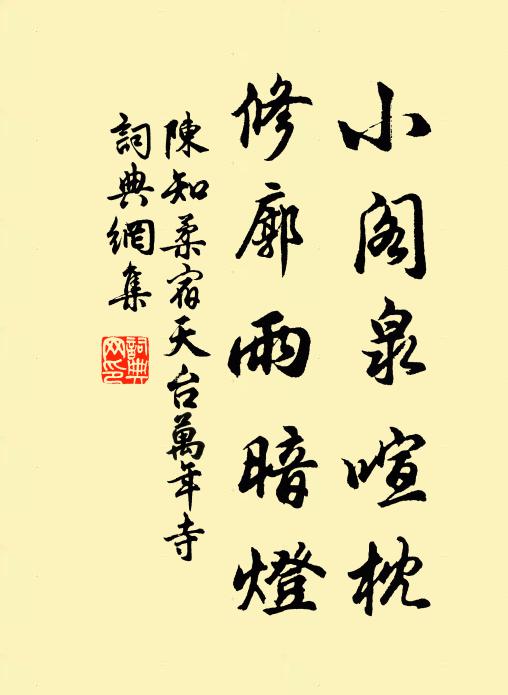 小閣泉喧枕
修廓雨暗燈
陳知柔宿天台萬年寺
詞典網集
詞典網印